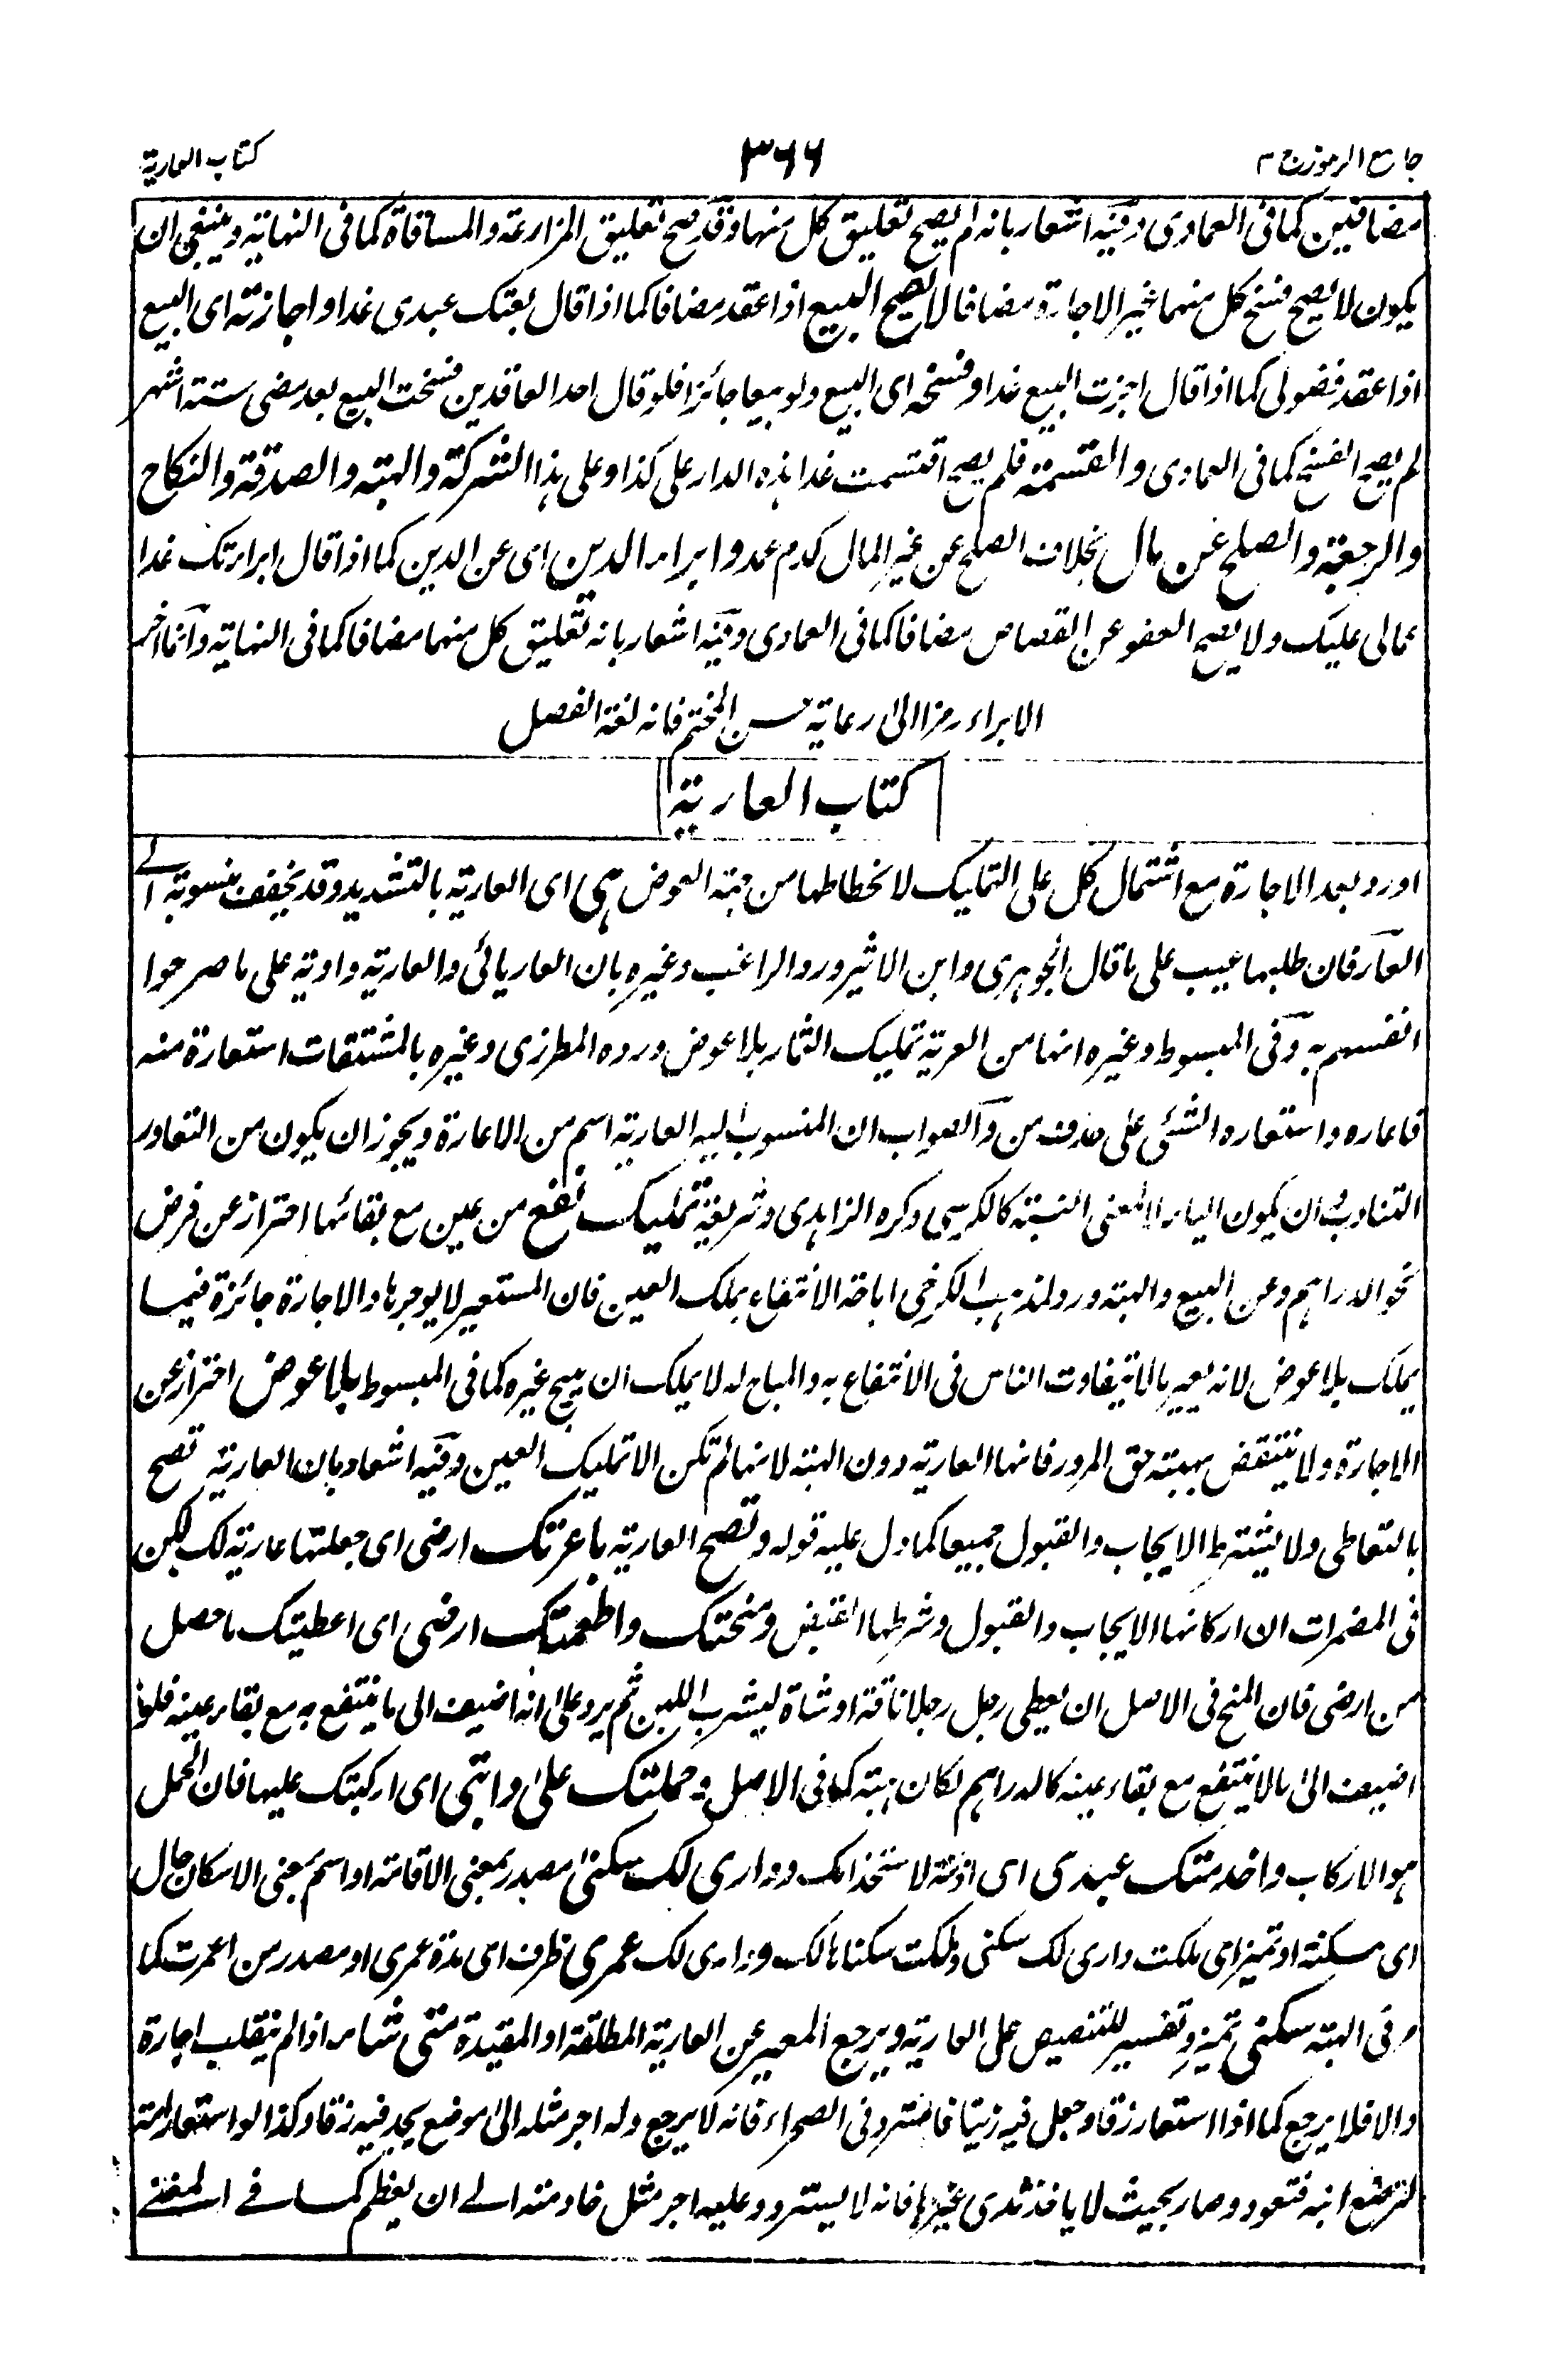 جامع الرموز ج ۳
۳۶۶
كتاب العارية
مضافين كما فى العمادى وفيه اشعار بانه لم يصح تعليق كل منها وقد صح تعليق المزارعة والمساقاة كما فى النهاية وينبغى ان
يكون لا يصح فسخ كل منهما غير الاجارة مضافا لا يصح البيع اذا عقد مضافا كما اذا قال بعتك عبدى غدا واجازته اى البيع
اذا عقد فضولى كما اذا قال اجزت البيع غدا وفسخه اى البيع ولو بيعا جائزا فلو قال احد العاقدين فسخت البيع بعد مضى ستة اشهر
لم يصح الفسخ كما فى العمادى والقسمة فلم يصح اقتسمت غدا هذه الدار على كذا وعلى هذا الشركة والهبة والصدقة والنكاح
والرجعة والصلح عن مال بخلاف الصلح عن غير المال كدم عمد وابراء الدين اى عن الدين كما اذا قال ابرأتك غدا
عمالى عليك ولا يصح العفو عن القصاص مضافا كما فى العمادى وفيه اشعار بانه تعليق كل منهما مضافا كما فى النهاية وانما اخر
الابراء رمزا الى رعاية حسن المختتم فانه لغة الفصل
كتاب العارية
اورد بعد الاجارة مع اشتمال كل على التمليك لانحطاطها من جهة العوض هى اى العارية بالتشديد وقد يخفف منسوبة الے
العار فان طلبها عيب على ما قال الجوهرى وابن الاثير ورد الراغب وغيره بان العار يائى والعارية واوية على ما صرحوا
انفسهم به وفى المبسوط وغيره انها من العرية تمليك الثمار بلا عوض ورده المطرزى وغيره بالمشتقات استعارة منه
فاعاره واستعاره الشئ على حذف من والصواب ان المنسوب اليه العارية اسم من الاعارة ويجوز ان يكون من التعاور
التناوب وان يكون الياء لا لمعنى النسبة كالكرسى ذكره الزاهدى وشريعة تمليك نفع من عين مع بقائها احتراز عن قرض
نحو الدراهم وعن البيع والهبة ورد لمذهب الكرخى اباحة الانتفاع بملك العين فان المستعير لا يوجرها والاجارة جائزة فيما
يملك بلا عوض لانه يعير ما لا يتفاوت الناس فى الانتفاع به والمباح له لا يملك ان يبيح غيره كما فى المبسوط بلا عوض احتراز عن
الاجارة ولا ينتقض بهبة حق المرور فانها العارية دون الهبة لانها لم تكن الا تمليك العين وفيه اشعار بان العارية تصح
بالتعاطى ولا يشترط الايجاب والقبول جميعا كما دل عليه قوله وتصح العارية باعرتك ارضى اى جعلتها عارية لك لكن
فى المضمرات ان اركانها الايجاب والقبول وشرطها القبض ومنحتك واطعمتك ارضى اى اعطيتك ما حصل
من ارضى فان المنح فى الاصل ان يعطى رجل رجلا ناقة او شاة ليشرب اللبن ثم يرد على انه اضيف الى ما ينتفع به مع بقاء عينه فلو
اضيف الى ما لا ينتفع مع بقاء عينه كالدراهم لكان هبة كما فى الاصل وحملتك على دابتى اى اركبتك عليها فان الحمل
هو الاركاب واخدمتك عبدى اى اذنته لاستخدامك ودارى لك سكنى مصدر بمعنى الاقامة او اسم بمعنى الاسكان حال
اى مسكنة او تميز اى ملكت دارى لك سكنى وملكت سكناها لك ودارى لك عمرى ظرف اى مدة عمرى او مصدر من اعمرت كما
مر فى الهبة سكنى تميز وتفسير للتنصيص على العارية ويرجع المعير عن العارية المطلقة او المقيدة متى شاء اذا لم ينقلب اجارة
والا فلا يرجع كما اذا استعار زقا وجعل فيه زيتا فاسترد فى الصحراء فانه لا يرجع وله اجر مثله الى موضع يجد فيه زقا وكذا لو استعار امة
لترضع ابنه فتعود وصار بحيث لا ياخذ ثدى غيرها فانه لا يسترد وعليه اجر مثل خادمته الے ان يفطم كما فے المغنے